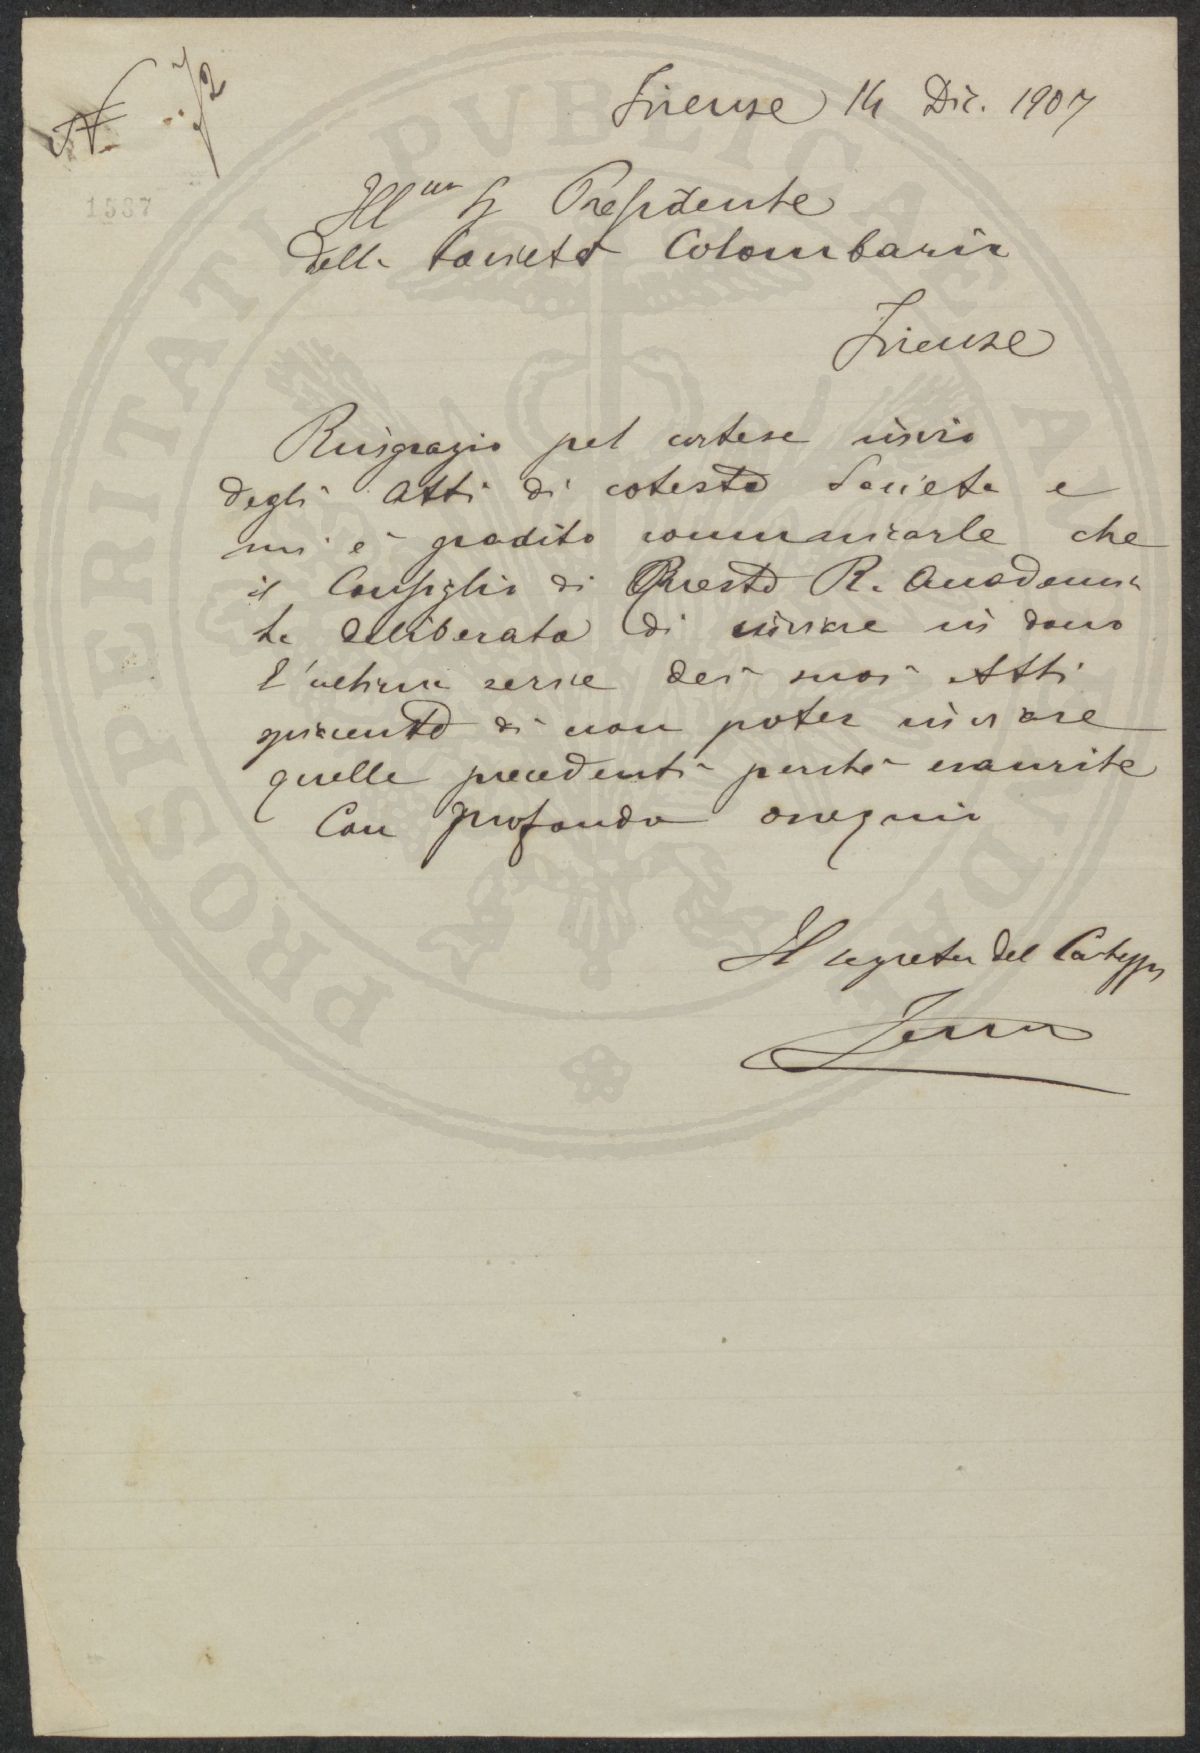 N. 72
Firenze 14 Dic. 1907
1587
Ill.mo Sr Presidente
della Società Colombaria
Firenze
Ringrazio pel cortese invio
degli Atti di cotesta Società e
mi è gradito communicarle che
il Consiglio di Questa R. Accademia
ha deliberato di inviare in dono
l'ultima serie dei suoi Atti
spiacente di non poter inviare
quelle precedenti perchè esaurite
Con profondo ossequio
Il segretar del Carteggio
PROSPERITATI PVBLICAE AVGENDAE